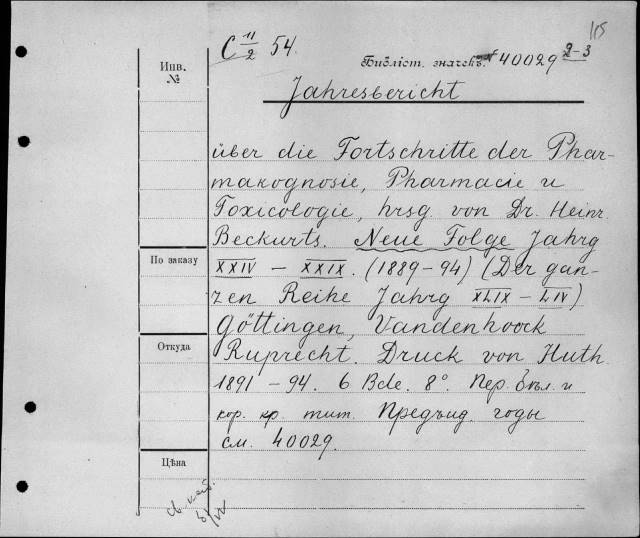 115
C 11/2 54.
Библіот. значекъ. 40029 2-3
Инв. №
Jahresbericht
über die Fortschritte der Phar-
makognosie, Pharmacie u
Toxicologie, hrsg. von Dr. Heinr.
Beckurts. Neue Folge Jahrg
По заказу
XXIV – XXIX. (1889-94) (Der gan-
zen Reihe Jahrg XLIX – LIV)
Göttingen, Vandenhoock
Откуда
Ruprecht. Druck von Huth.
1891-94. 6 Bde. 8°. Пер. бѣл. и
кор. кр. тит. Предъид. годы
см. 40029.
Цѣна